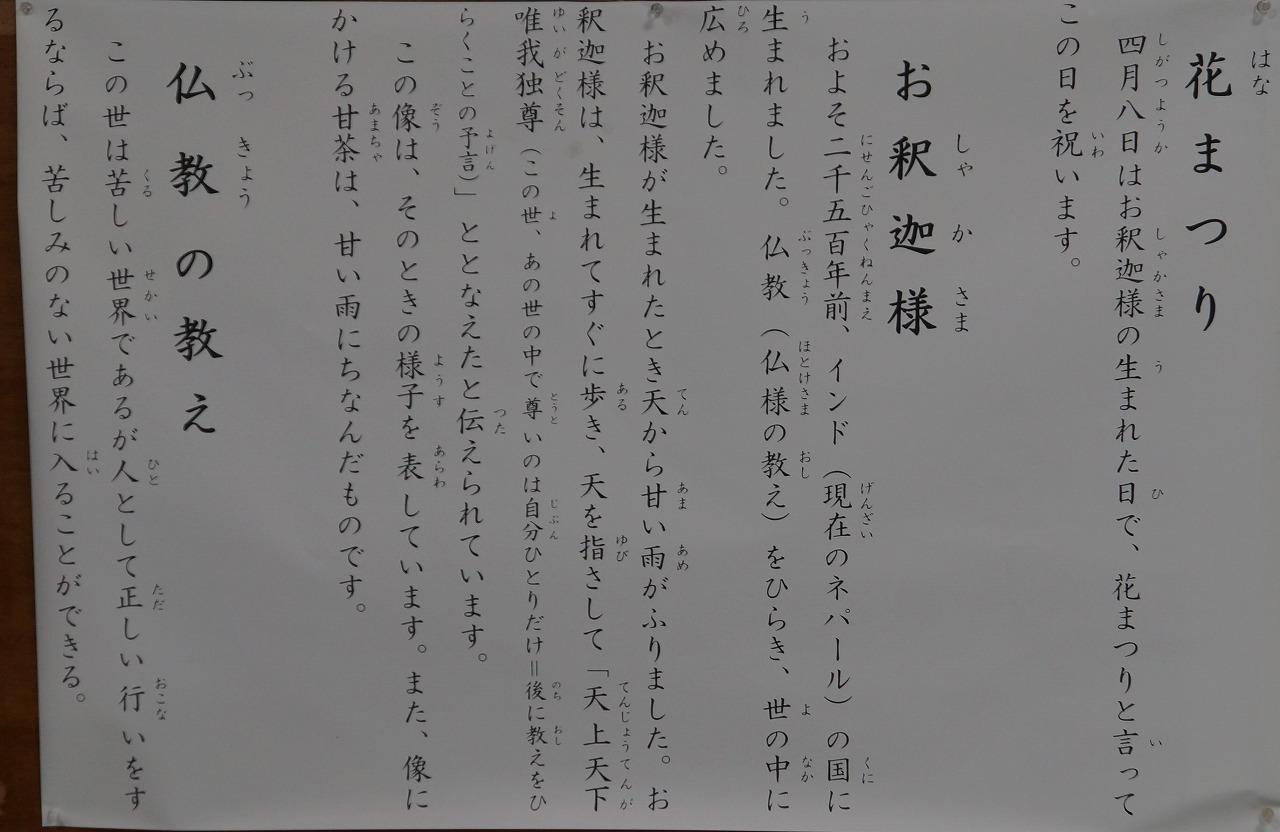 花まつり
四月八日はお釈迦様の生まれた日で、花まつりと言って
この日を祝います。
お釈迦様
およそ二千五百年前、インド（現在のネパール）の国に
生まれました。仏教（仏様の教え）をひらき、世の中に
広めました。
お釈迦様が生まれたとき天から甘い雨がふりました。お
釈迦様は、生まれてすぐに歩き、天を指さして「天上天下
唯我独尊（この世、あの世の中で尊いのは自分ひとりだけ＝後に教えをひ
らくことの予言）」ととなえたと伝えられています。
この像は、そのときの様子を表しています。また、像に
かける甘茶は、甘い雨にちなんだものです。
仏教の教え
この世は苦しい世界であるが人として正しい行いをす
るならば、苦しみのない世界に入ることができる。